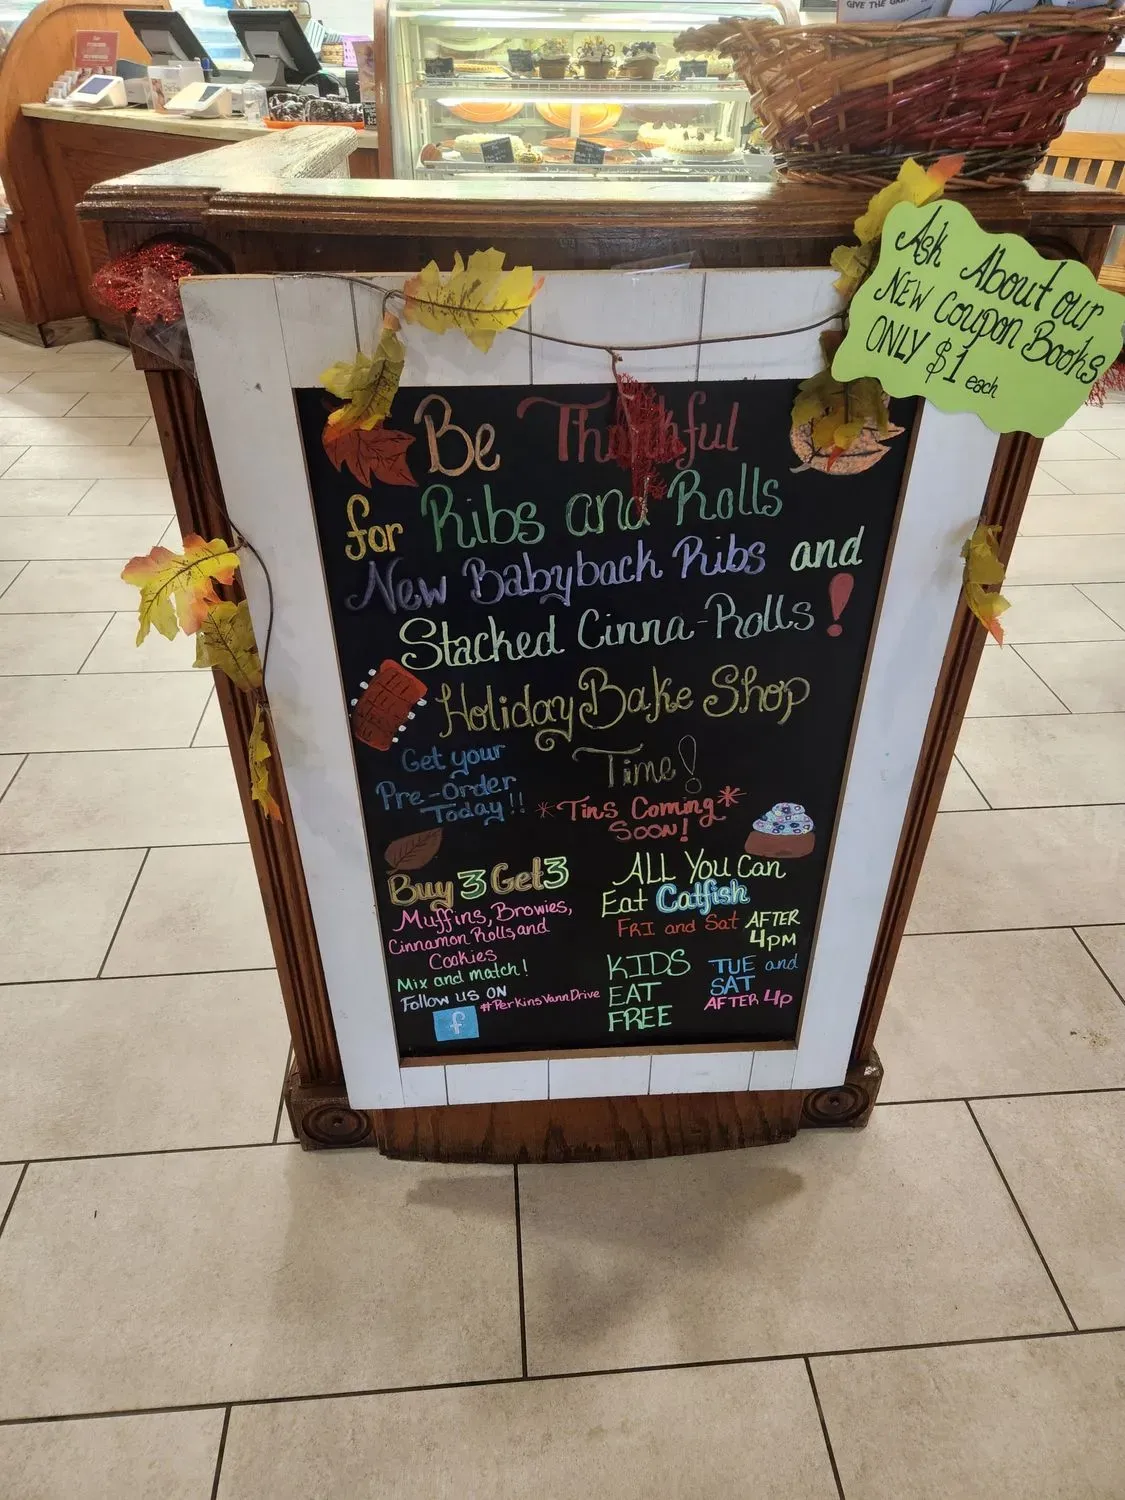 GIVE THE
Ask About our
NEW Coupon Books
ONLY $1 each
Be Thankful
for Ribs and Rolls
New Babyback Ribs and
Stacked Cinna-Rolls!
Holiday Bake Shop
Time!
Get your
Pre-Order
Today!!
*Tins Coming*
Soon!
Buy 3 Get 3
Muffins, Browies,
Cinnamon Rolls, and
Cookies
Mix and match!
Follow us ON
f
#PerkinsVannDrive
ALL You Can
Eat Catfish
FRI and Sat AFTER
4PM
KIDS
EAT
FREE
TUE and
SAT
AFTER 4p